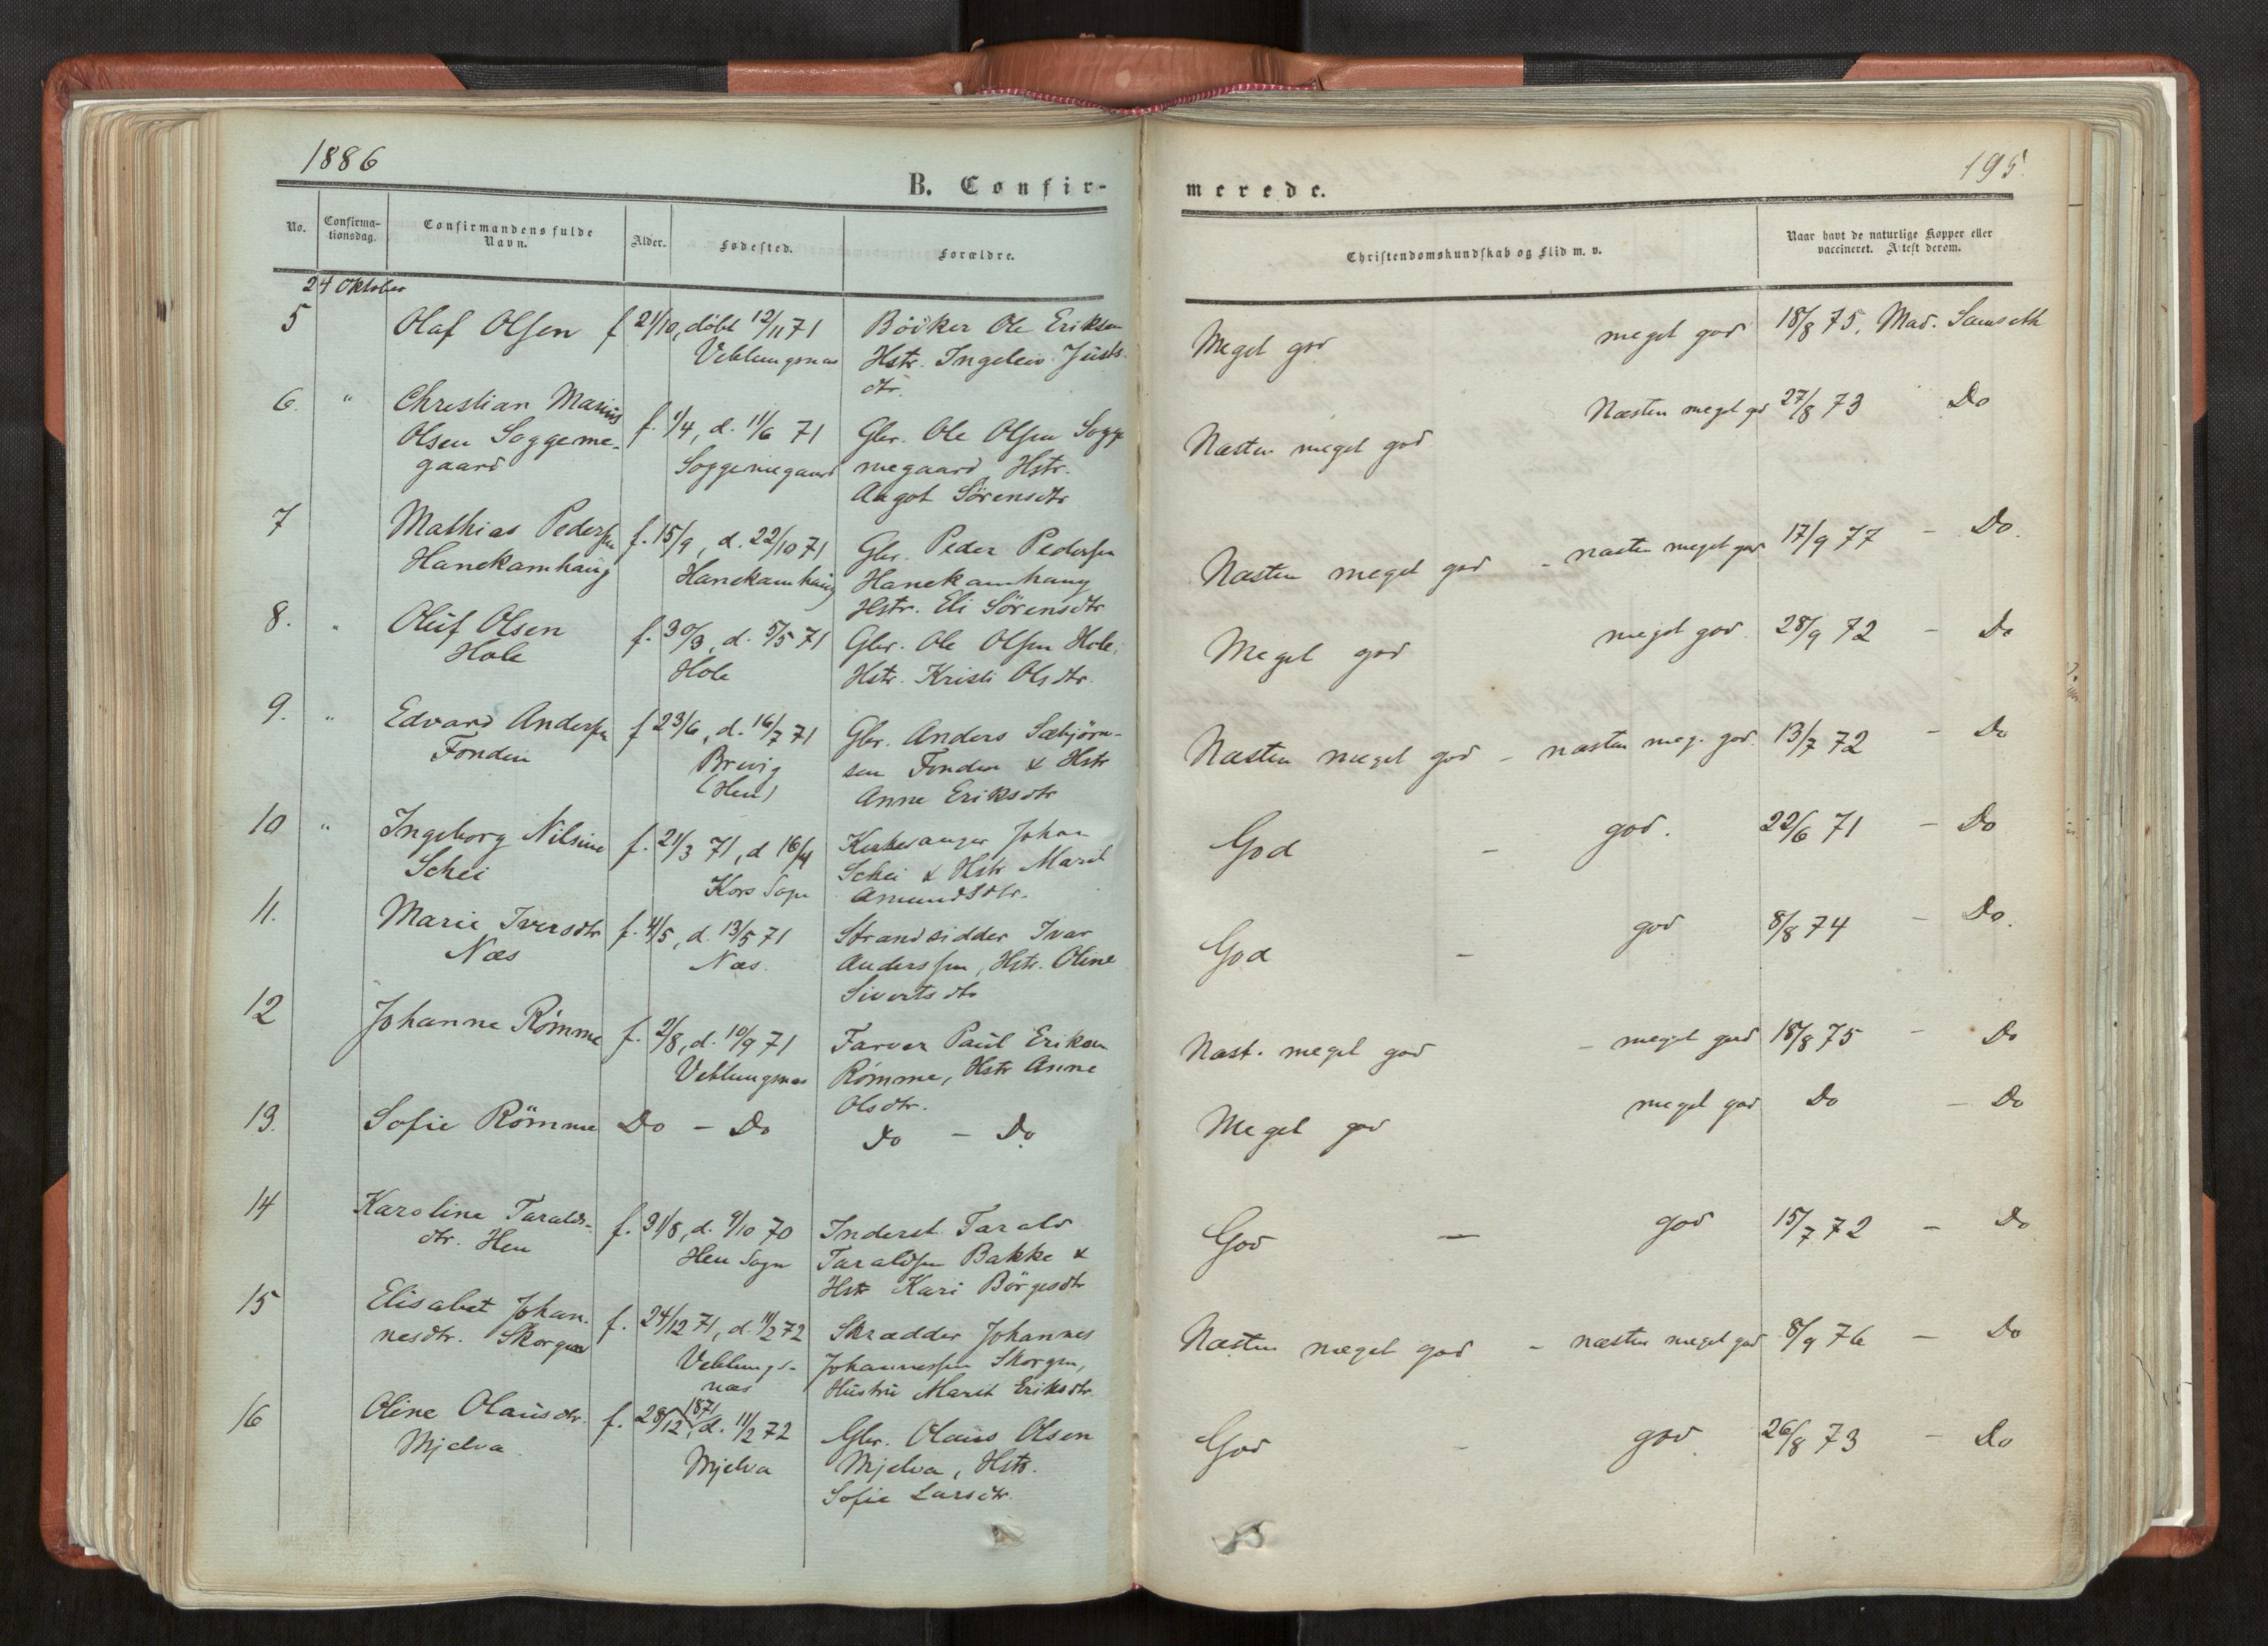 1886
195
B. Confir-
merede.
No.
Confirma-
tionsdag.
Confirmandens fulde
Navn.
Alder.
Fødested.
Forældre.
Christendomskundskab og Flid m. v.
Naar havt de naturlige Kopper eller
vaccineret. Attest derom.
24 Oktober
5 Olaf Olsen f 21/10, döbt 12/11 71 Böiker Ole Eriksen Meget god meget god 18/8 75, Mad. Samseth
Veblungsnæs Hstr. Ingeleiv Justs
dtr.
6. " Christian Marius f. 1/4, d. 11/6 71 Gbr. Ole Olsen Sogge Næsten meget god Næsten meget god 27/8 73 Do
Olsen Soggeme- Soggemegaard megaard, Hstr.
gaard Angot Sörensdtr
7 Mathias Pedersen f. 15/9, d. 22/10 71 Gbr. Peder Pedersen Næsten meget god - næsten meget god 17/9 77 - Do.
Hanekamhaug Hanekamhaug Hanekamhaug
Hstr. Eli Sörensdtr
8. " Oluf Olsen f. 30/3, d. 5/5 71 Gbr. Ole Olsen Hole, Meget god meget god 28/9 72 - Do
Hole Hole Hstr. Kristi Olsdtr.
9. " Edvard Andersen f 23/6, d. 16/7 71 Gbr. Anders Sæbjörn- Næsten meget god - næsten meg. god. 13/7 72 - Do
Fonden Brevig sen Fonden & Hstr
(Hen) Anne Eriksdtr
10 " Ingeborg Nilsine f. 21/3 71, d 16/4 Kirkesanger Johan God - god. 22/6 71 - Do
Schei Kors Sogn Schei & Hstr Marit
Amundsdtr.
11. Marie Iversdtr f. 4/5, d. 13/5 71 Strandsidder Ivar God - god 8/8 74 - Do.
Næs Næs. Anderssen, Hstr. Oline
Sivertsdtr
12 Johanne Römme f. 2/8, d. 10/9 71 Farver Paul Eriksen Næst. meget god - meget god 18/8 75 - Do
Veblungsnæs Römme, Hstr Anne
Olsdtr.
13. Sofie Römme Do - Do Do - Do Meget god meget god Do - Do
14 Karoline Taralds- f. 31/8, d. 9/10 70 Inderst Tarald God - god 15/7 72 - Do
dtr. Hen Hen Sogn Taraldsen Bakke &
Hstr Kari Börgesdtr
15 Elisabet Johan- f. 24/12 71, d. 11/2 72 Skrædder Johannes Næsten meget god - næsten meget god 8/9 76 - Do
nesdtr. Skorgen Veblungs- Johannessen Skorgen,
næs Hustru Marit Eriksdtr.
16 Oline Olausdtr. f. 28/12 1871, d. 11/2 72 Gbr. Olaus Olsen God - god 26/8 73 - Do
Mjelva. Mjelva Mjelva, Hstr.
Sofie Larsdtr.